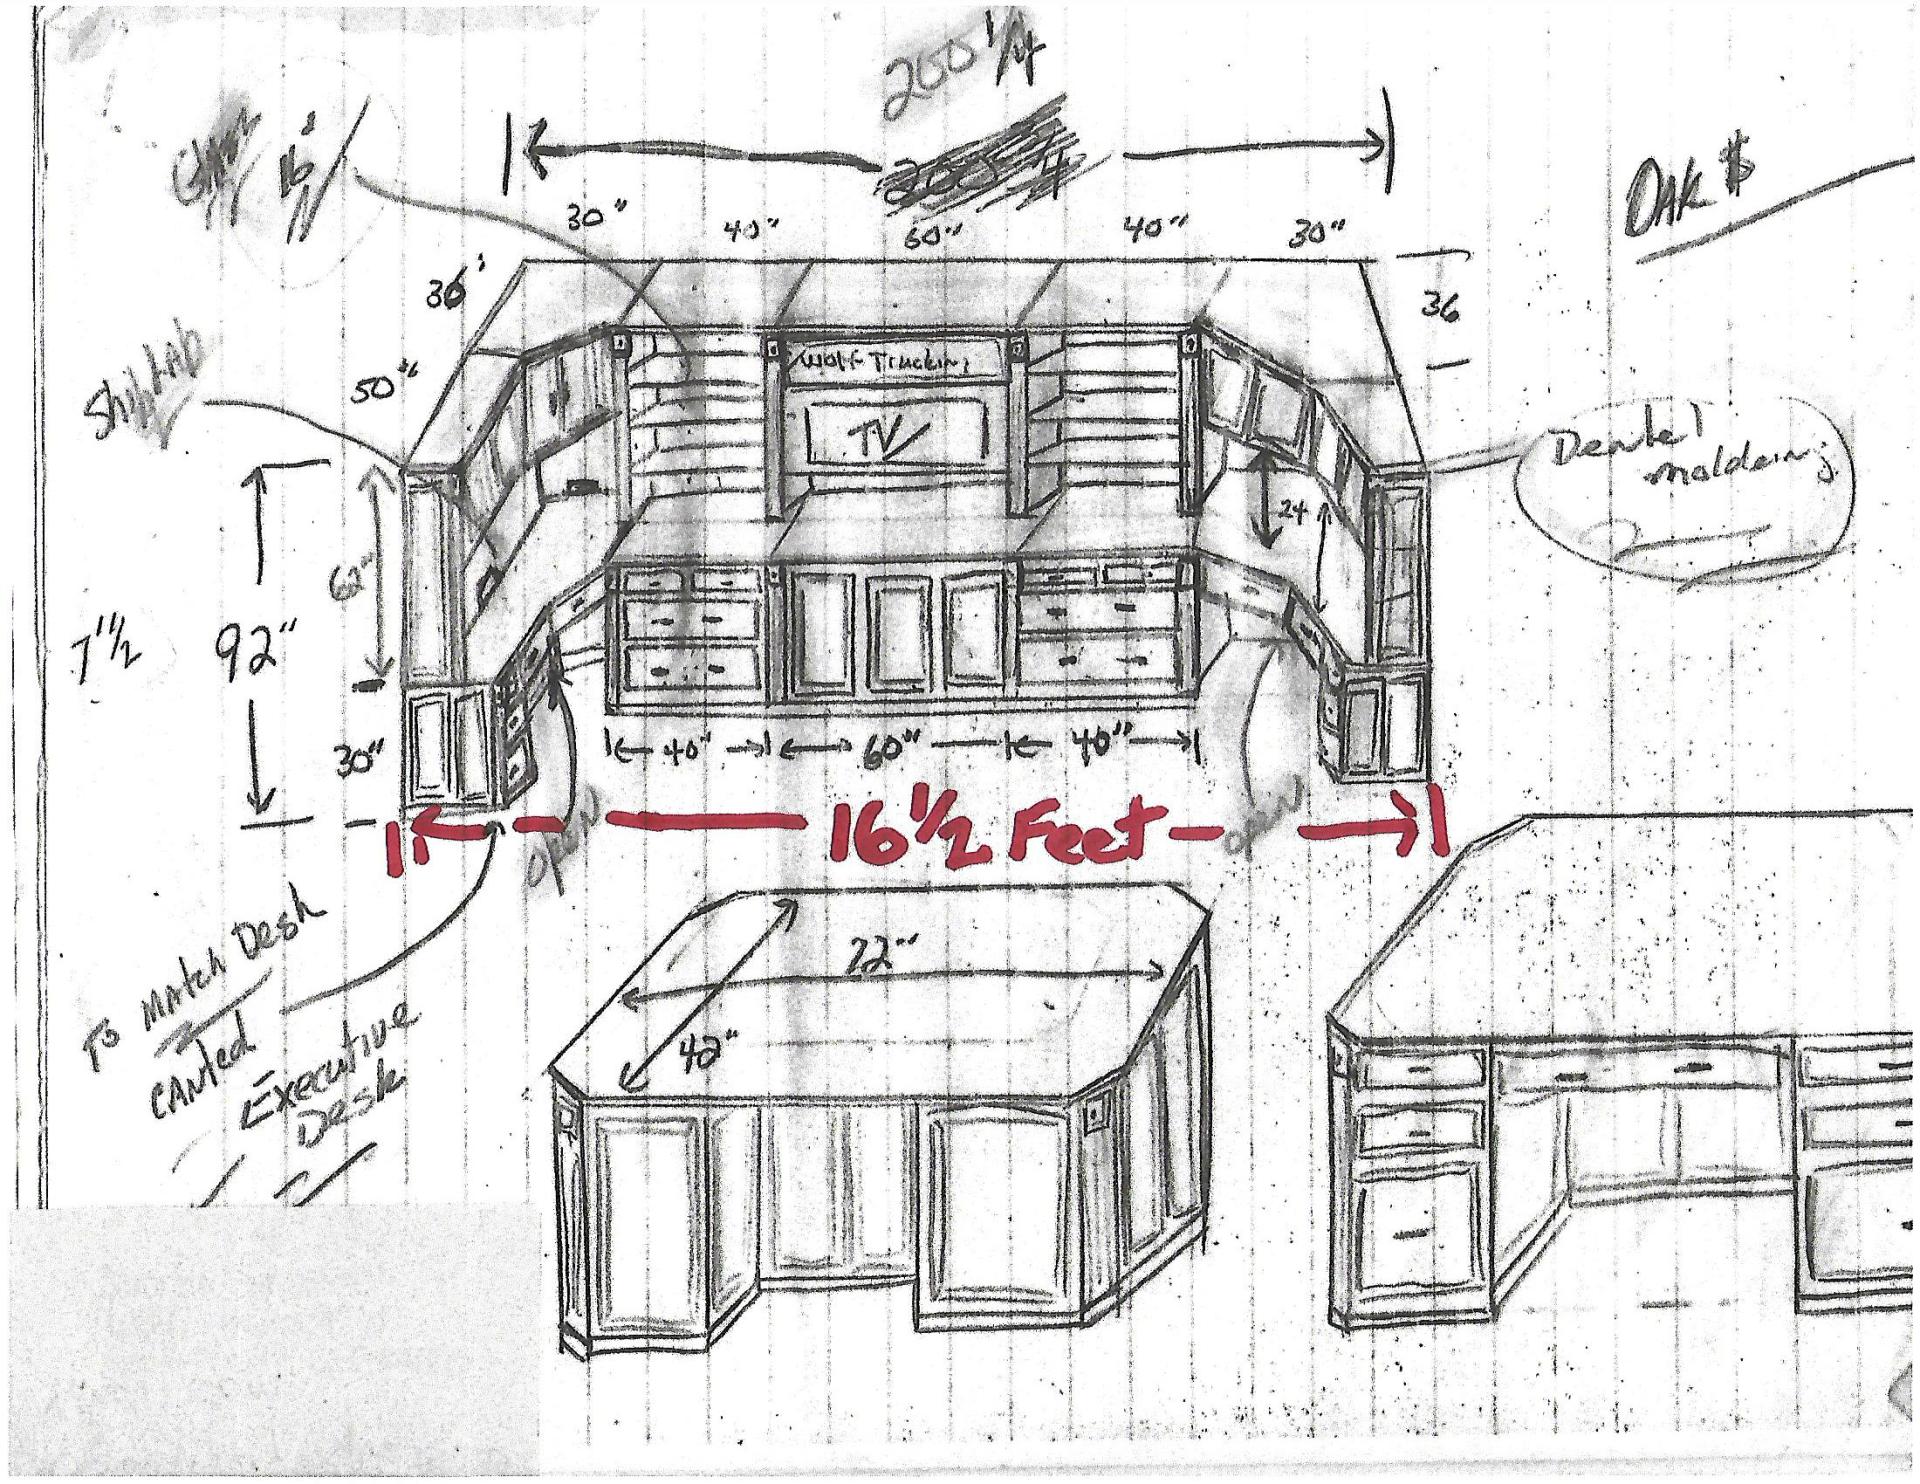 200 1/4
16'
OAK $
30" 40" 60" 40" 30"
36'
36
50"
Wolf Trucking
TV
Shiplap
Dental
moldeing
24
62"
7' 1/2
92"
30"
40" 60" 40"
16 1/2 Feet
OPEN
OPEN
To MAtch Desk
CANted
Executive
Desk
72"
42"